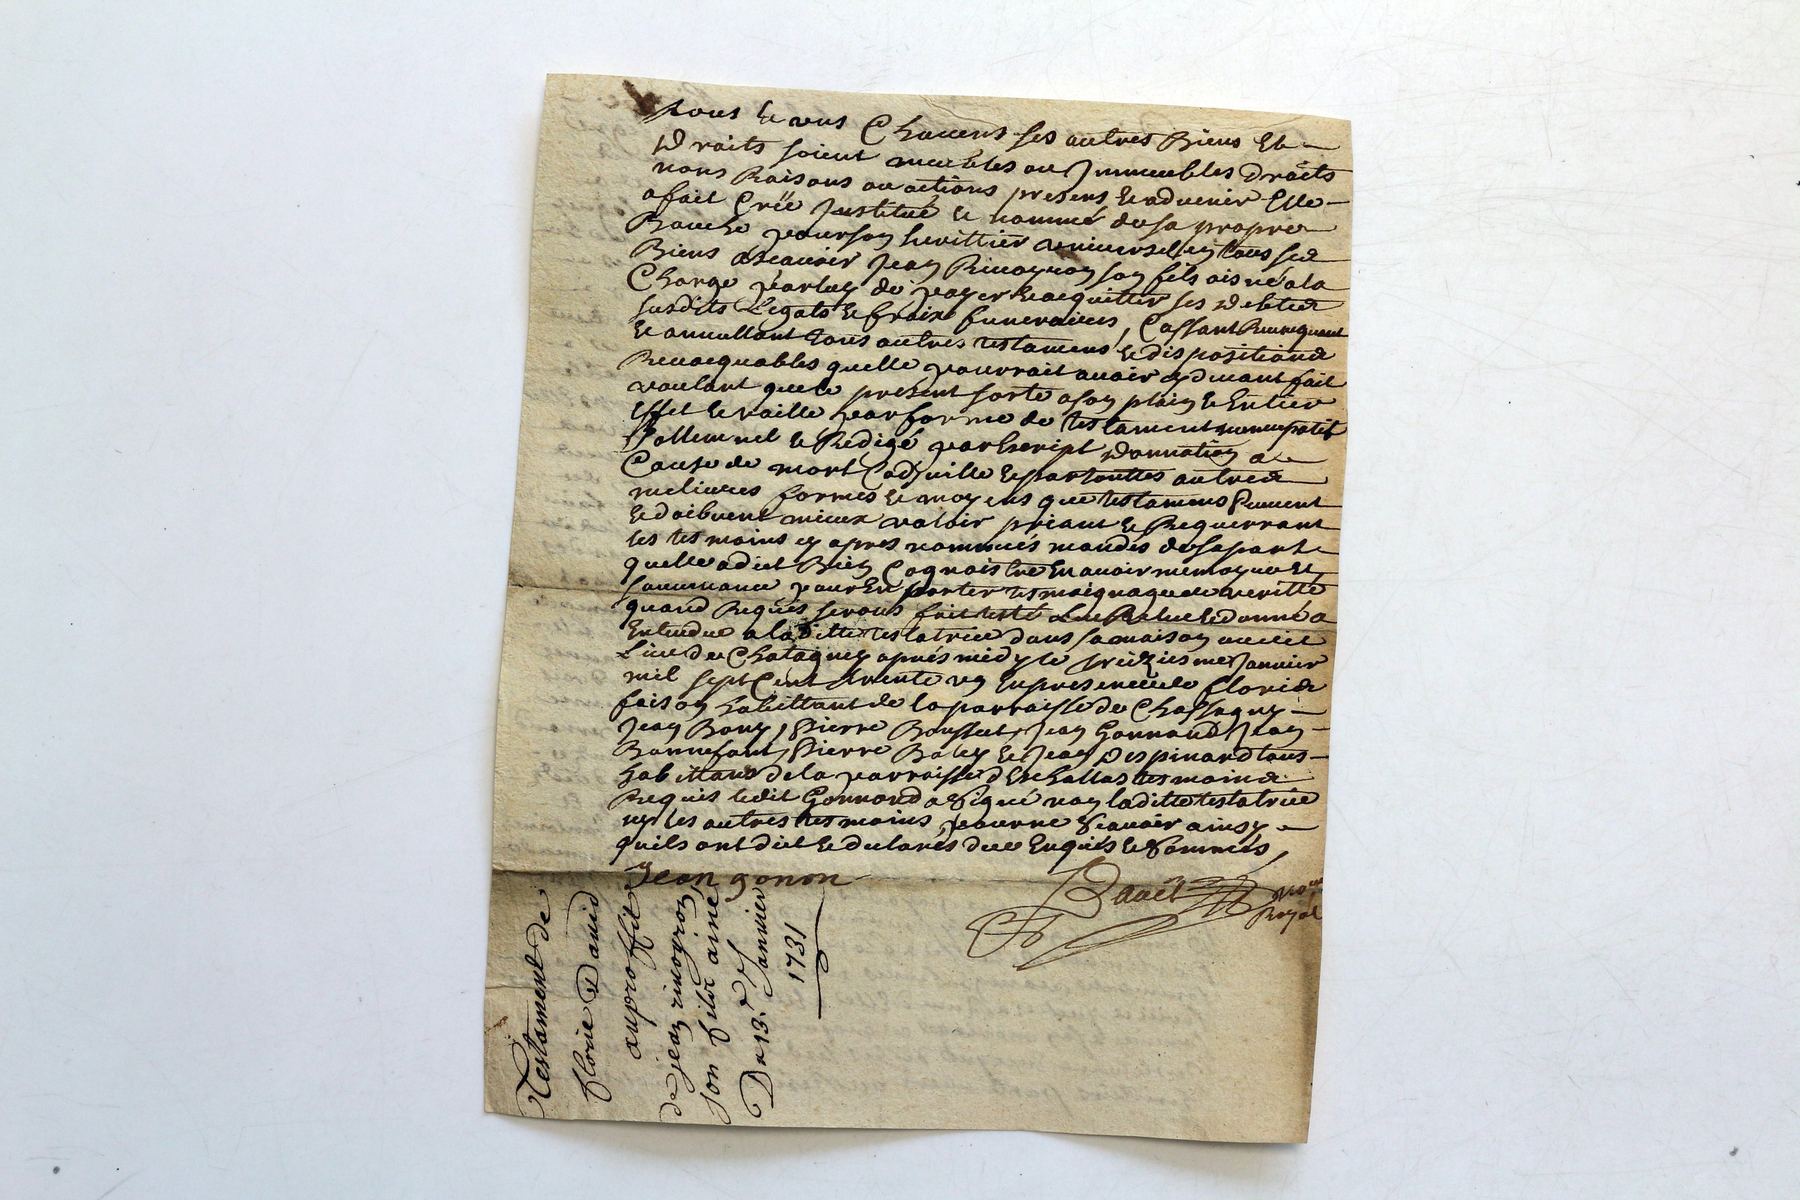 tous et uns Chacuns ses autres Biens Et
Droits soient meubles ou Immeubles Droits
noms Raisons ou actions presens et advenir Elle
a fait Créé Institué et nommé de sa propre
Bouche pour son herittier universel en tous ses
Biens a scavoir Jean Rivoyron son fils aisné a la
Charge par luy de payer et acquitter ses debtes
susdits Legats et fraix funeraires, Cassant Revoquant
et annullant tous autres testamens et dispositions
Revocquables quelle pourroit avoir cy devant fait
voulant que le present sorte a son plain et Entier
Effet et vaille par forme de testament noncupatif
Sollemnel et Redigé par Escript donnation a
Cause de mort Codjcille et par touttes autres
melieures formes et moyens que testamens peuvent
et doibvent mieux valoir priant et Requerrant
les tesmoins cy apres nommés mandés de sa part
quelle a dict Bien Cognoistre En avoir memoyre Et
souvenance pour En porter tesmoignage de veritté
quand Requis seronts fait Leu Releu et donné a
Entendre a la ditte testatrice dans sa maison audit
Lieu de Chatagney après midy le treiziesme Janvier
mil sept Cent trente un En presence de florie
faison habittant de la parroisse de Chassagny
Jean Bony, Pierre Bousset, Jean Gonnand, Jean
Bonnefont, Pierre Boley et Jean Despinard tous
habittans de la parroisse d'Eschallas tesmoins
Requis ledit Gonnand a Signé non laditte testatrice
ny les autres tesmoins pour ne Scavoir ainsy
quils ont dict et declarés de ce Enquis et Sommés,
Jean gonon
Davet
Royal
Testament de
florie David
au proffit
de jean rivoyron
son fils ainé
Du 13.e Janvier
1731